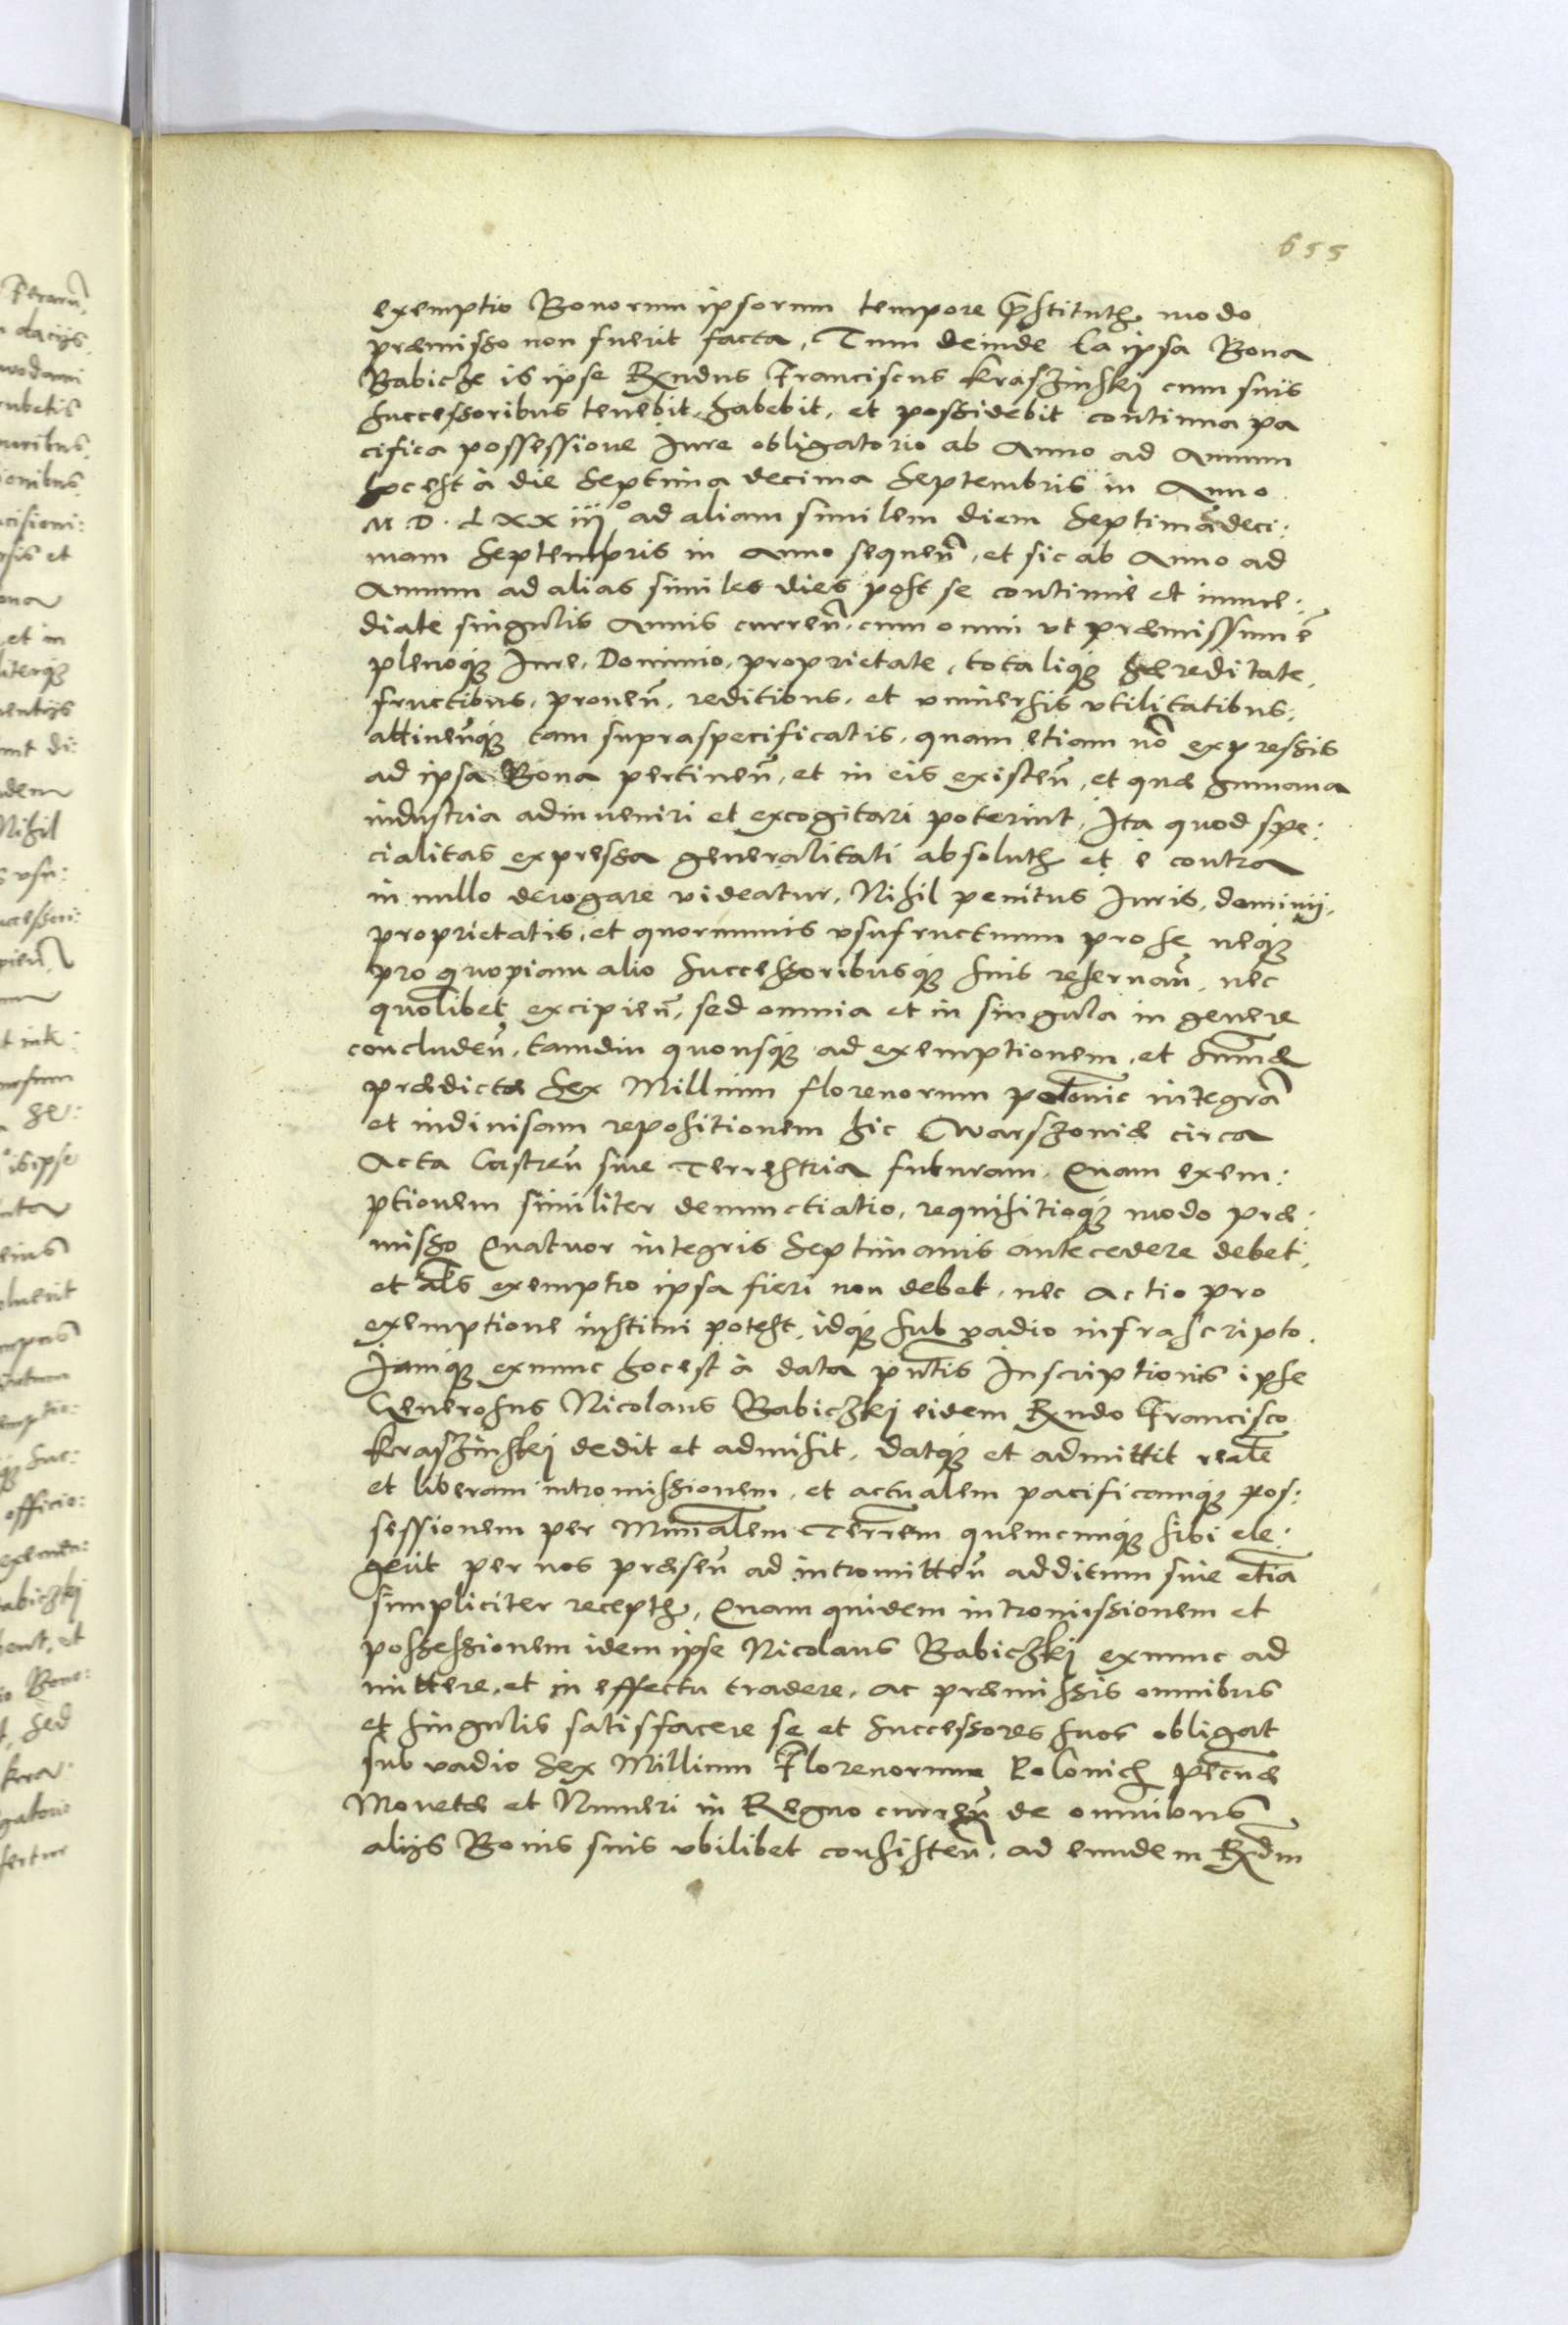 655
exemptio Bonorum ipsorum tempore p̄stitut͛ modo
præmisso non fuerit facta, Tum deinde ea ipsa Bona
Babicze is ipse Rx̄ndus Franciscus Kraszinskj cum suis
successoribus tenebit, habebit, et possidebit continua pa
cifica possessione Iure obligatorio ab Anno ad Annum
hoc est à die Septima decima Septembris in Anno
M. D. LXXiijº ad aliam similem diem Septimādeci:
mam Septembris in Anno sequeñ, et sic ab Anno ad
Annum ad alias similes dies post se continuè et imme:
diate singulis Annis curreñ, cum omni vt præmissum ē
plenoq; Iure, Dominio, proprietate, totaliq; hæreditate,
fructibus, proueñ, reditibus, et vniuersis vtilitatibus,
attineñq; tam supraspecificatis, quam etiam nō expressis
ad ipsa Bona pertineñ, et in eis existeñ, et quæ humana
industria adinueniri et excogitari poterint, Ita quod spe:
cialitas expressa generalitati absolut͛ et è contra
in nullo derogare videatur, Nihil penitus Iuris, dominij,
proprietatis, et quorumuis vsufructuum pro se neq;
pro quopiam alio Successoribusq; suis reseruañ, nec
quolibet excipieñ, sed omnia et in singula in genere
concludeñ, tamdiu quousq; ad exemptionem, et sum̄æ
prædictæ Sex Millium florenorum polonic integrā
et indiuisam repositionem hic Warszouiæ circa
Acta Castreñ siue Terrestria futuram. Quam exem:
ptionem similiter denunctiatio, requisitioq; modo præ:
misso Quatuor integris Septimanis antecedere debet,
et al̄s exemptio ipsa fieri non debet, nec actio pro
exemptione institui potest, idq; sub vadio infrascripto.
Iamq; exnunc hoc est à data pn̄tis Inscriptionis ipse
Generosus Nicolaus Babiczkj eidem Rx̄ndo Francisco
Kraszinskj dedit et admisit, datq; et admittit realē
et liberam intromissionem, et actualem pacificamq; pos:
sessionem per Min̄alem Terrēm quemcunq; sibi ele:
gerit per nos præseñ ad intromitteñ additum siue etiā
simpliciter recept͛, Quam quidem intromissionem et
possessionem idem ipse Nicolaus Babiczkj exnunc ad
mittere, et in effectu tradere, ac præmissis omnibus
et singulis satisfacere se et successores suos obligat
sub vadio Sex Millium Florenorum Polonich pecūæ
Monetæ et Numeri in Regno curreñ de omnibus
alijs Bonis suis vbilibet consisteñ, ad eundem Rx̄dm